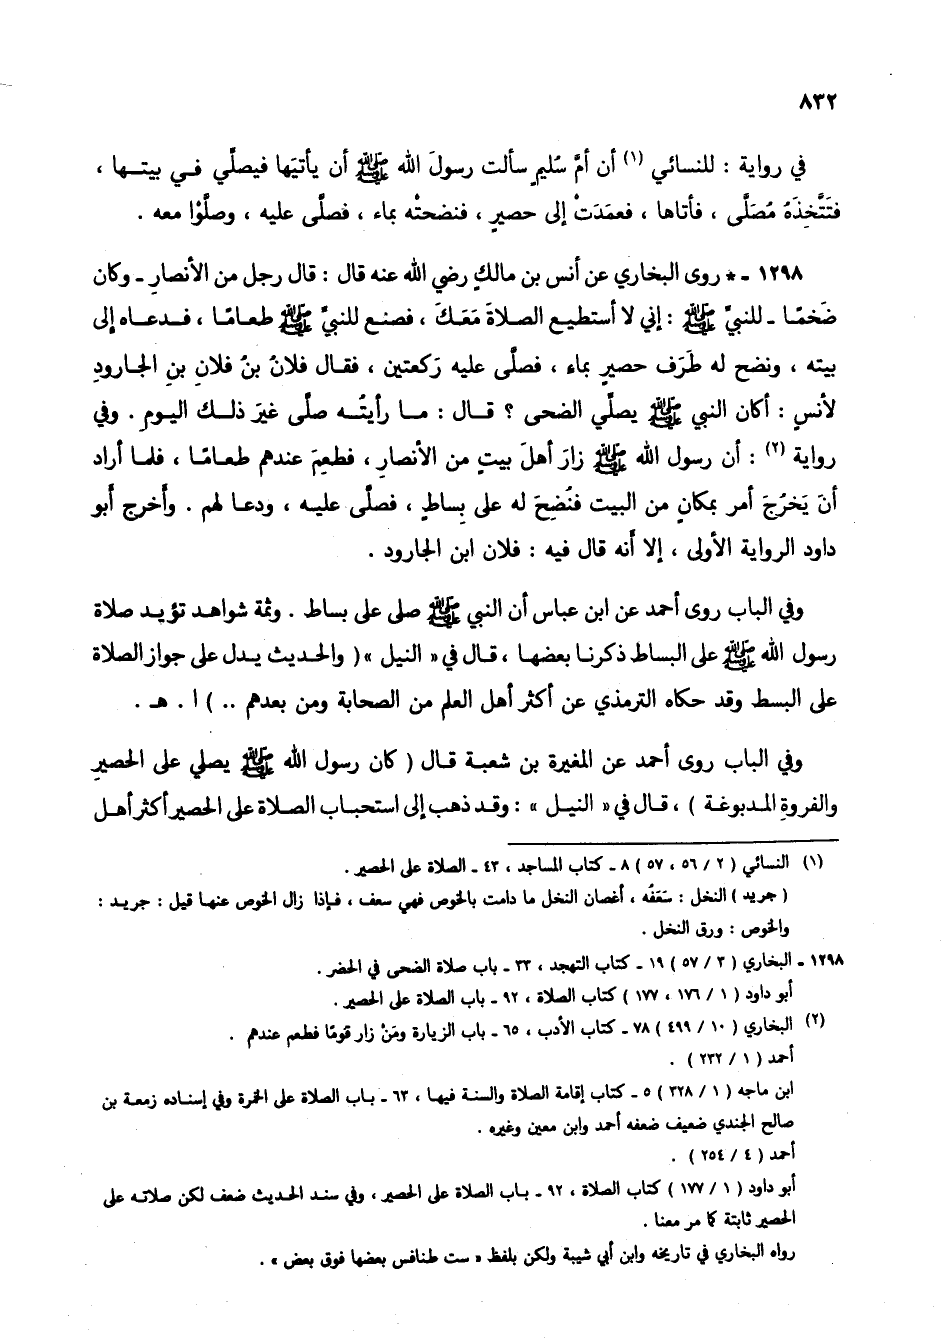 ٨٣٢
في رواية : للنسائي (١) أن أمَّ سُليمٍ سألت رسولَ الله ﷺ أن يأتيَها فيصلَّي فـي بيتـهـا ،
فتَتَّخِذَهُ مُصَلَّى ، فأتاها ، فعمَدَتْ إلى حصيرٍ ، فنضحتْه بماء ، فصلَّى عليه ، وصلَّوْا معه .
١٢٩٨ - * روى البخاري عن أنس بن مالكٍ رضي الله عنه قال : قال رجل من الأنصارِ - وكان
ضَخمًـا - للنبيِّ ﷺ : إني لا أستطيـع الصـلاةَ مَعَـكَ ، فصنـع للنبيِّ ﷺ طعـامًـا ، فـدعـاه إلى
بيته ، ونضح له طَرَف حصيرٍ بماء ، فصلَّى عليه رَكعتين ، فقـال فلانُ بنُ فلانِ بنِ الجارودِ
لأنسٍ : أكان النبي ﷺ يصلَّي الضحى ؟ قـال : مـا رأيتُـه صلَّى غيرَ ذلـك اليـومِ . وفي
رواية (٢) : أن رسول الله ﷺ زارَ أهلَ بيتٍ من الأنصارِ ، فطعِمَ عندهم طعـامًـا ، فلمـا أراد
أنَ يَخرُجَ أمر بمكانٍ من البيت فنُضِحَ له على بِساطٍ ، فصلَّى عليـه ، ودعـا لهم . وأَخرج أَبو
داود الرواية الأولى ، إلا أَنه قال فيه : فلان ابن الجارود .
وفي الباب روى أحمد عن ابن عباس أن النبي ﷺ صلى على بساط . وثمة شواهـد تؤيـد صلاة
رسول الله ﷺ على البساط ذكرنـا بعضهـا ، قـال في « النيل » ( والحـديث يـدل على جواز الصلاة
على البسط وقد حكاه الترمذي عن أكثر أهل العلم من الصحابة ومن بعدهم .. ) ا . هـ .
وفي الباب روى أحمد عن المغيرة بن شعبة قـال ( كان رسول الله ﷺ يصلي على الحصيرِ
والفروةِ المـدبوغـة ) ، قـال في « النيـل » : وقـد ذهب إلى استحبـاب الصـلاة على الحصير أكثر أهـل
(١) النسائي ( ٢ / ٥٦ ، ٥٧ ) ٨ - كتاب المساجد ، ٤٣ - الصلاة على الحصير .
( جريد ) النخل : سَعَفُه ، أغصان النخل ما دامت بالخوص فهي سعف ، فـإذا زال الخوص عنهـا قيل : جريـد :
والخوص : ورق النخل .
١٢٩٨ - البخاري ( ٣ / ٥٧ ) ١٩ - كتاب التهجد ، ٣٣ - باب صلاة الضحى في الحضر .
أبو داود ( ١ / ١٧٦ ، ١٧٧ ) كتاب الصلاة ، ٩٢ - باب الصلاة على الحصير .
(٢) البخاري ( ١٠ / ٤٩٩ ) ٧٨ - كتاب الأدب ، ٦٥ - باب الزيارة ومَنْ زار قومًا فطعم عندهم .
أحمد ( ١ / ٢٣٢ ) .
ابن ماجه ( ١ / ٣٢٨ ) ٥ - كتاب إقامة الصلاة والسنة فيهـا ، ٦٣ - بـاب الصلاة على الخمرة وفي إسنـاده زمعـة بن
صالح الجندي ضعيف ضعفه أحمد وابن معين وغيره .
أحمد ( ٤ / ٢٥٤ ) .
أبو داود ( ١ / ١٧٧ ) كتاب الصلاة ، ٩٢ - بـاب الصلاة على الحصير ، وفي سنـد الحـديث ضعف لكن صلاتـه على
الحصير ثابتة كما مر معنا .
رواه البخاري في تاريخه وابن أبي شيبة ولكن بلفظ « ست طنافس بعضها فوق بعض » .